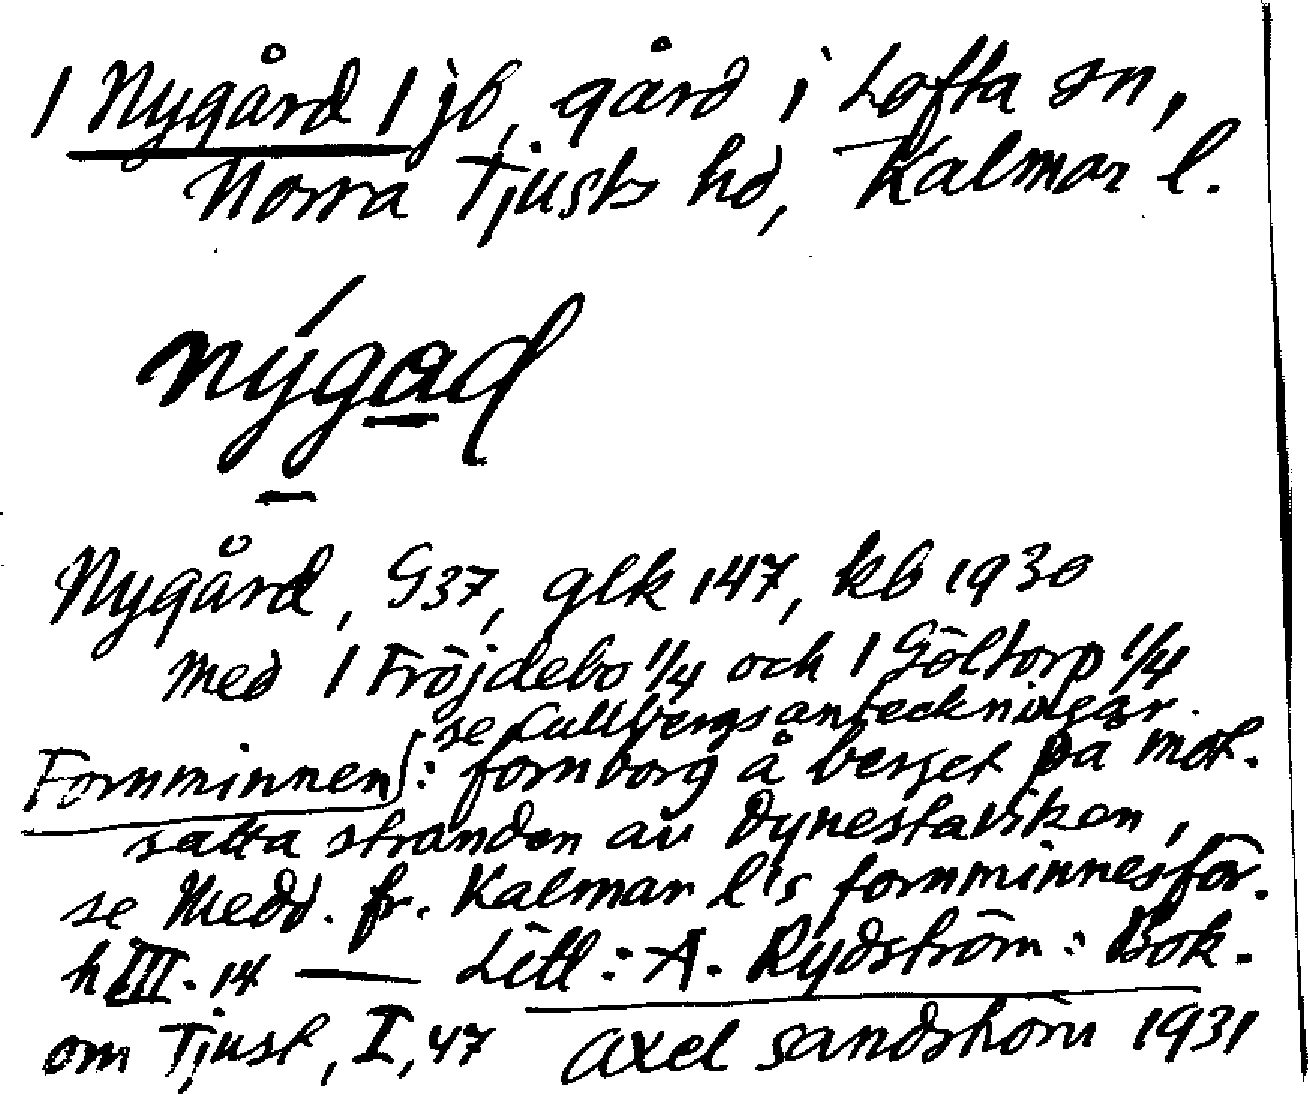 1 Nygård 1 jb, gård i Lofta sn,
Norra Tjusts hd, Kalmar l.
nýgad
Nygård, G37, glk 147, kb 1930
med 1 Fröjdebo 1/4 och 1 Göltorp 1/4
se Cullbergs anteckningar.
Fornminnen: fornborg å berget på mot-
satta stranden av Dynestaviken,
se Medd. fr. Kalmar l:s fornminnesför.
h III. 14 — Litt: A. Rydström: Bok.
om Tjust, I, 47 Axel Sandström 1931